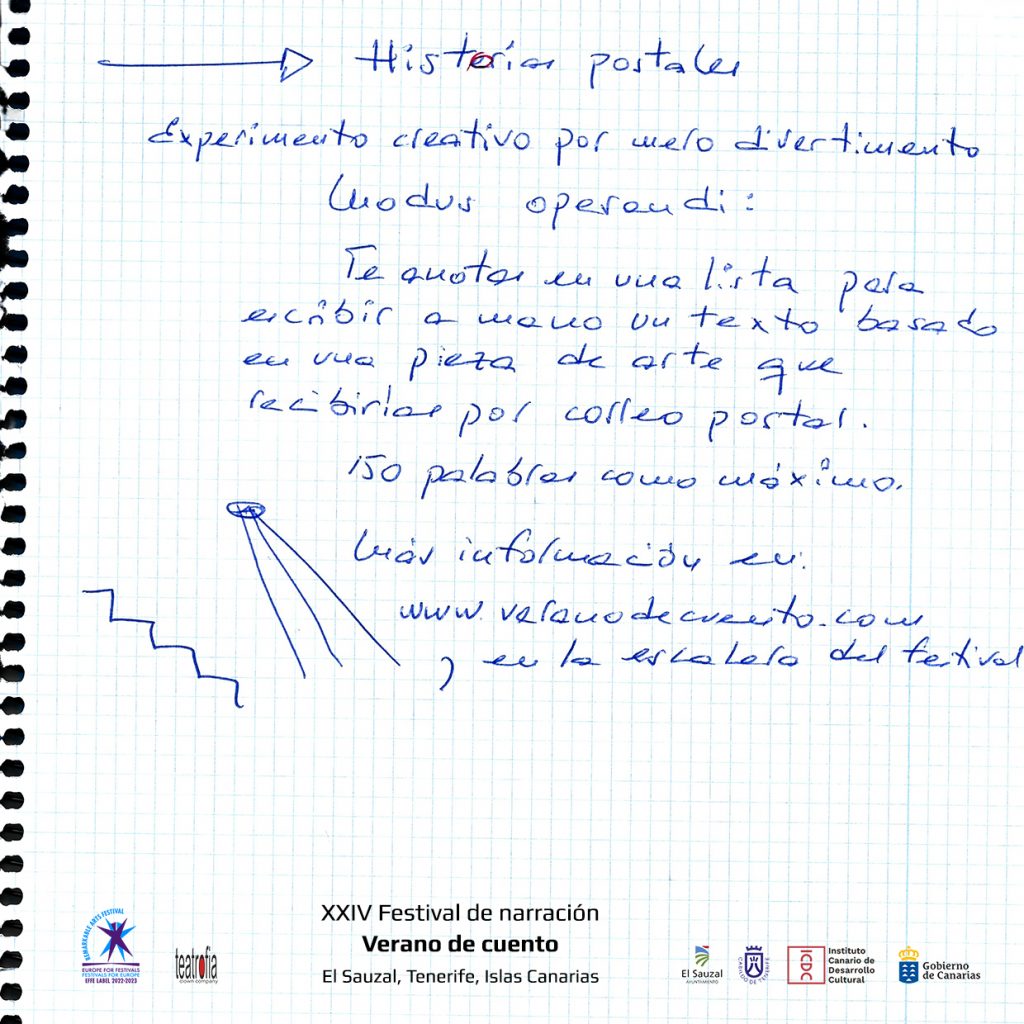 Historias postales
Experimento creativo por mero divertimento
Modus operandi:
Te anotas en una lista para
escribir a mano un texto basado
en una pieza de arte que
recibirías por correo postal.
150 palabras como máximo.
Más información en:
www.veranodecuento.com
, en la escalera del festival
XXIV Festival de narración
Verano de cuento
El Sauzal, Tenerife, Islas Canarias
REMARKABLE ARTS FESTIVAL
EUROPE FOR FESTIVALS
FESTIVALS FOR EUROPE
EFFE LABEL 2022-2023
teatrofia
clown company
El Sauzal
AYUNTAMIENTO
CABILDO DE TENERIFE
ICDC
Instituto
Canario de
Desarrollo
Cultural
Gobierno
de Canarias